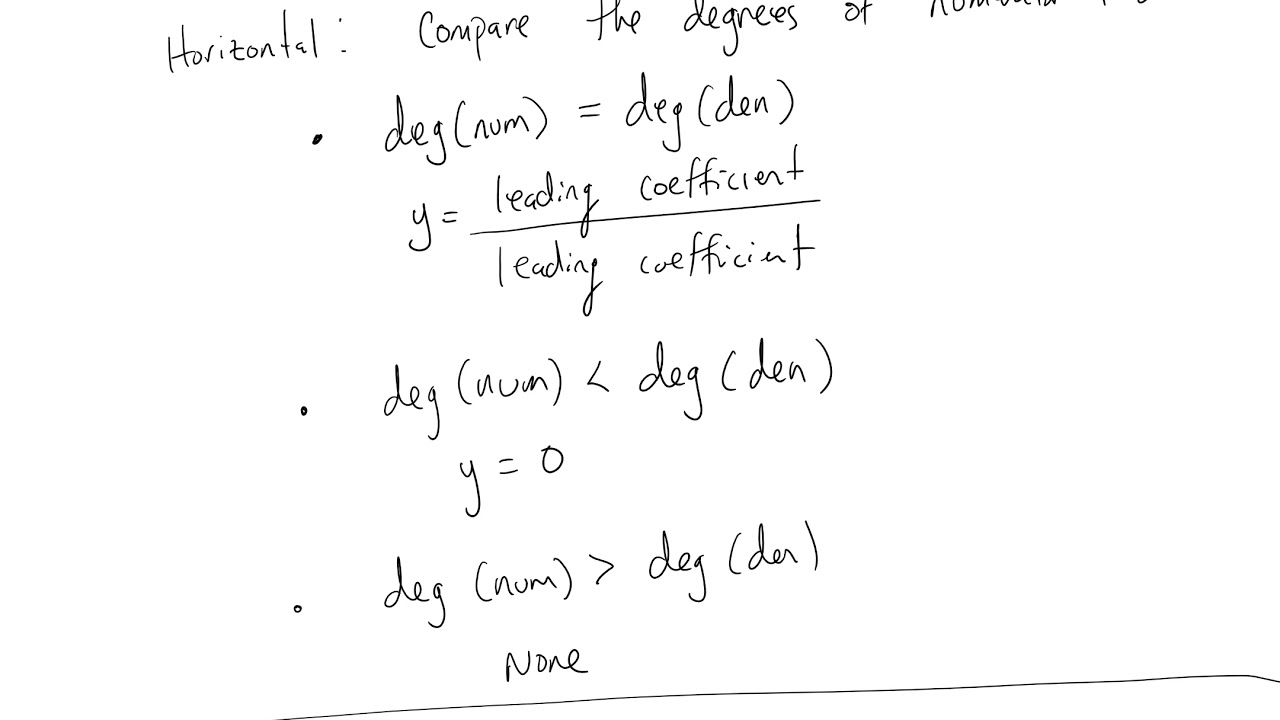 Horizontal: Compare the degrees of
deg(num) = deg(den)
y = leading coefficient
leading coefficient
deg (num) < deg (den)
y = 0
deg (num) > deg (den)
None